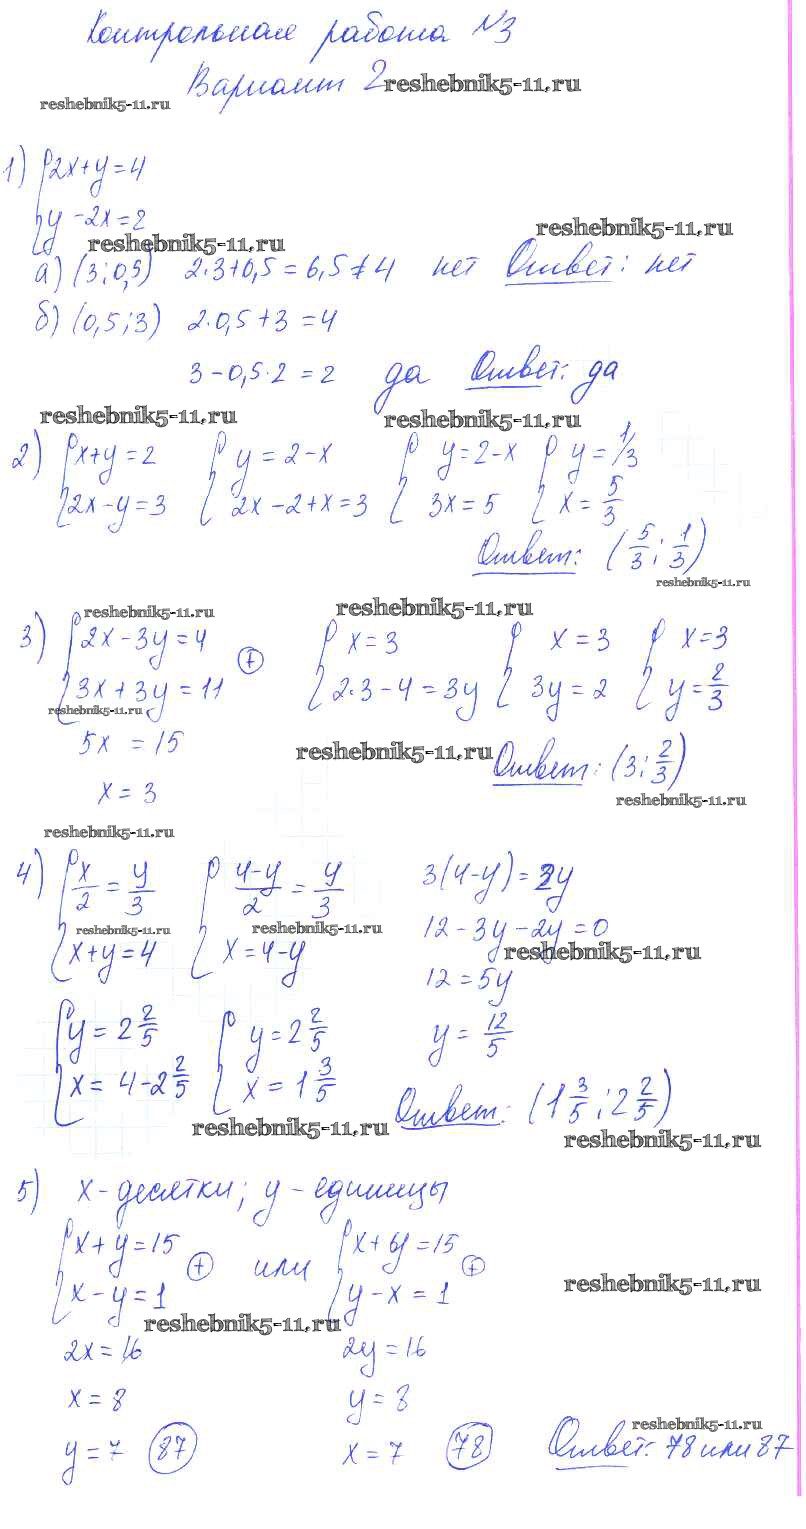 Контрольная работа №3
Вариант 2 reshebnik5-11.ru
reshebnik5-11.ru
1) {2x+y=4
{y-2x=2
reshebnik5-11.ru reshebnik5-11.ru
а) (3;0,5) 2·3+0,5=6,5≠4 нет Ответ: нет
б) (0,5;3) 2·0,5+3=4
3-0,5·2=2 да Ответ: да
reshebnik5-11.ru reshebnik5-11.ru
2) {x+y=2 {y=2-x {y=2-x {y=1/3
{2x-y=3 {2x-2+x=3 {3x=5 {x=5/3
Ответ: (5/3; 1/3)
reshebnik5-11.ru
reshebnik5-11.ru reshebnik5-11.ru
3) {2x-3y=4 (+) {x=3 {x=3 {x=3
{3x+3y=11 {2·3-4=3y {3y=2 {y=2/3
reshebnik5-11.ru
5x = 15 reshebnik5-11.ru Ответ: (3; 2/3)
x=3 reshebnik5-11.ru
reshebnik5-11.ru
4) {x/2=y/3 {(4-y)/2=y/3 3(4-y)=2y
reshebnik5-11.ru reshebnik5-11.ru 12-3y-2y=0
{x+y=4 {x=4-y reshebnik5-11.ru
12=5y
{y=2 2/5 {y=2 2/5 y=12/5
{x=4-2 2/5 {x=1 3/5 Ответ: (1 3/5; 2 2/5)
reshebnik5-11.ru reshebnik5-11.ru
5) x-десятки; y-единицы
{x+y=15 (+) или {x+y=15 (+)
{x-y=1 {y-x=1 reshebnik5-11.ru
reshebnik5-11.ru
2x=16 2y=16
x=8 y=8
reshebnik5-11.ru
y=7 (87) x=7 (78) Ответ: 78 или 87